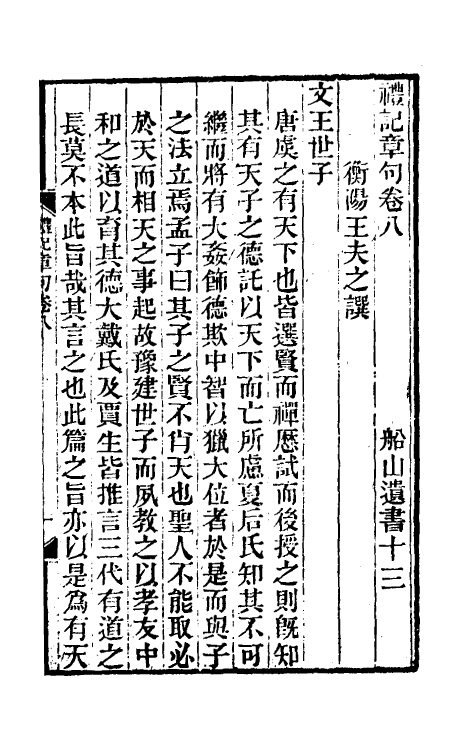 禮記章句卷八
船山遺書十三
衡陽王夫之譔
文王世子
唐虞之有天下也皆選賢而禪歷試而後授之則旣知
其有天子之德託以天下而亡所慮夏后氏知其不可
繼而將有大姦飾德欺中智以獵大位者於是而與子
之法立焉孟子曰其子之賢不肖天也聖人不能取必
於天而相天之事起故豫建世子而夙教之以孝友中
和之道以育其德大戴氏及賈生皆推言三代有道之
長莫不本此旨哉其言之也此篇之旨亦以是為有天
禮記章句卷八
一